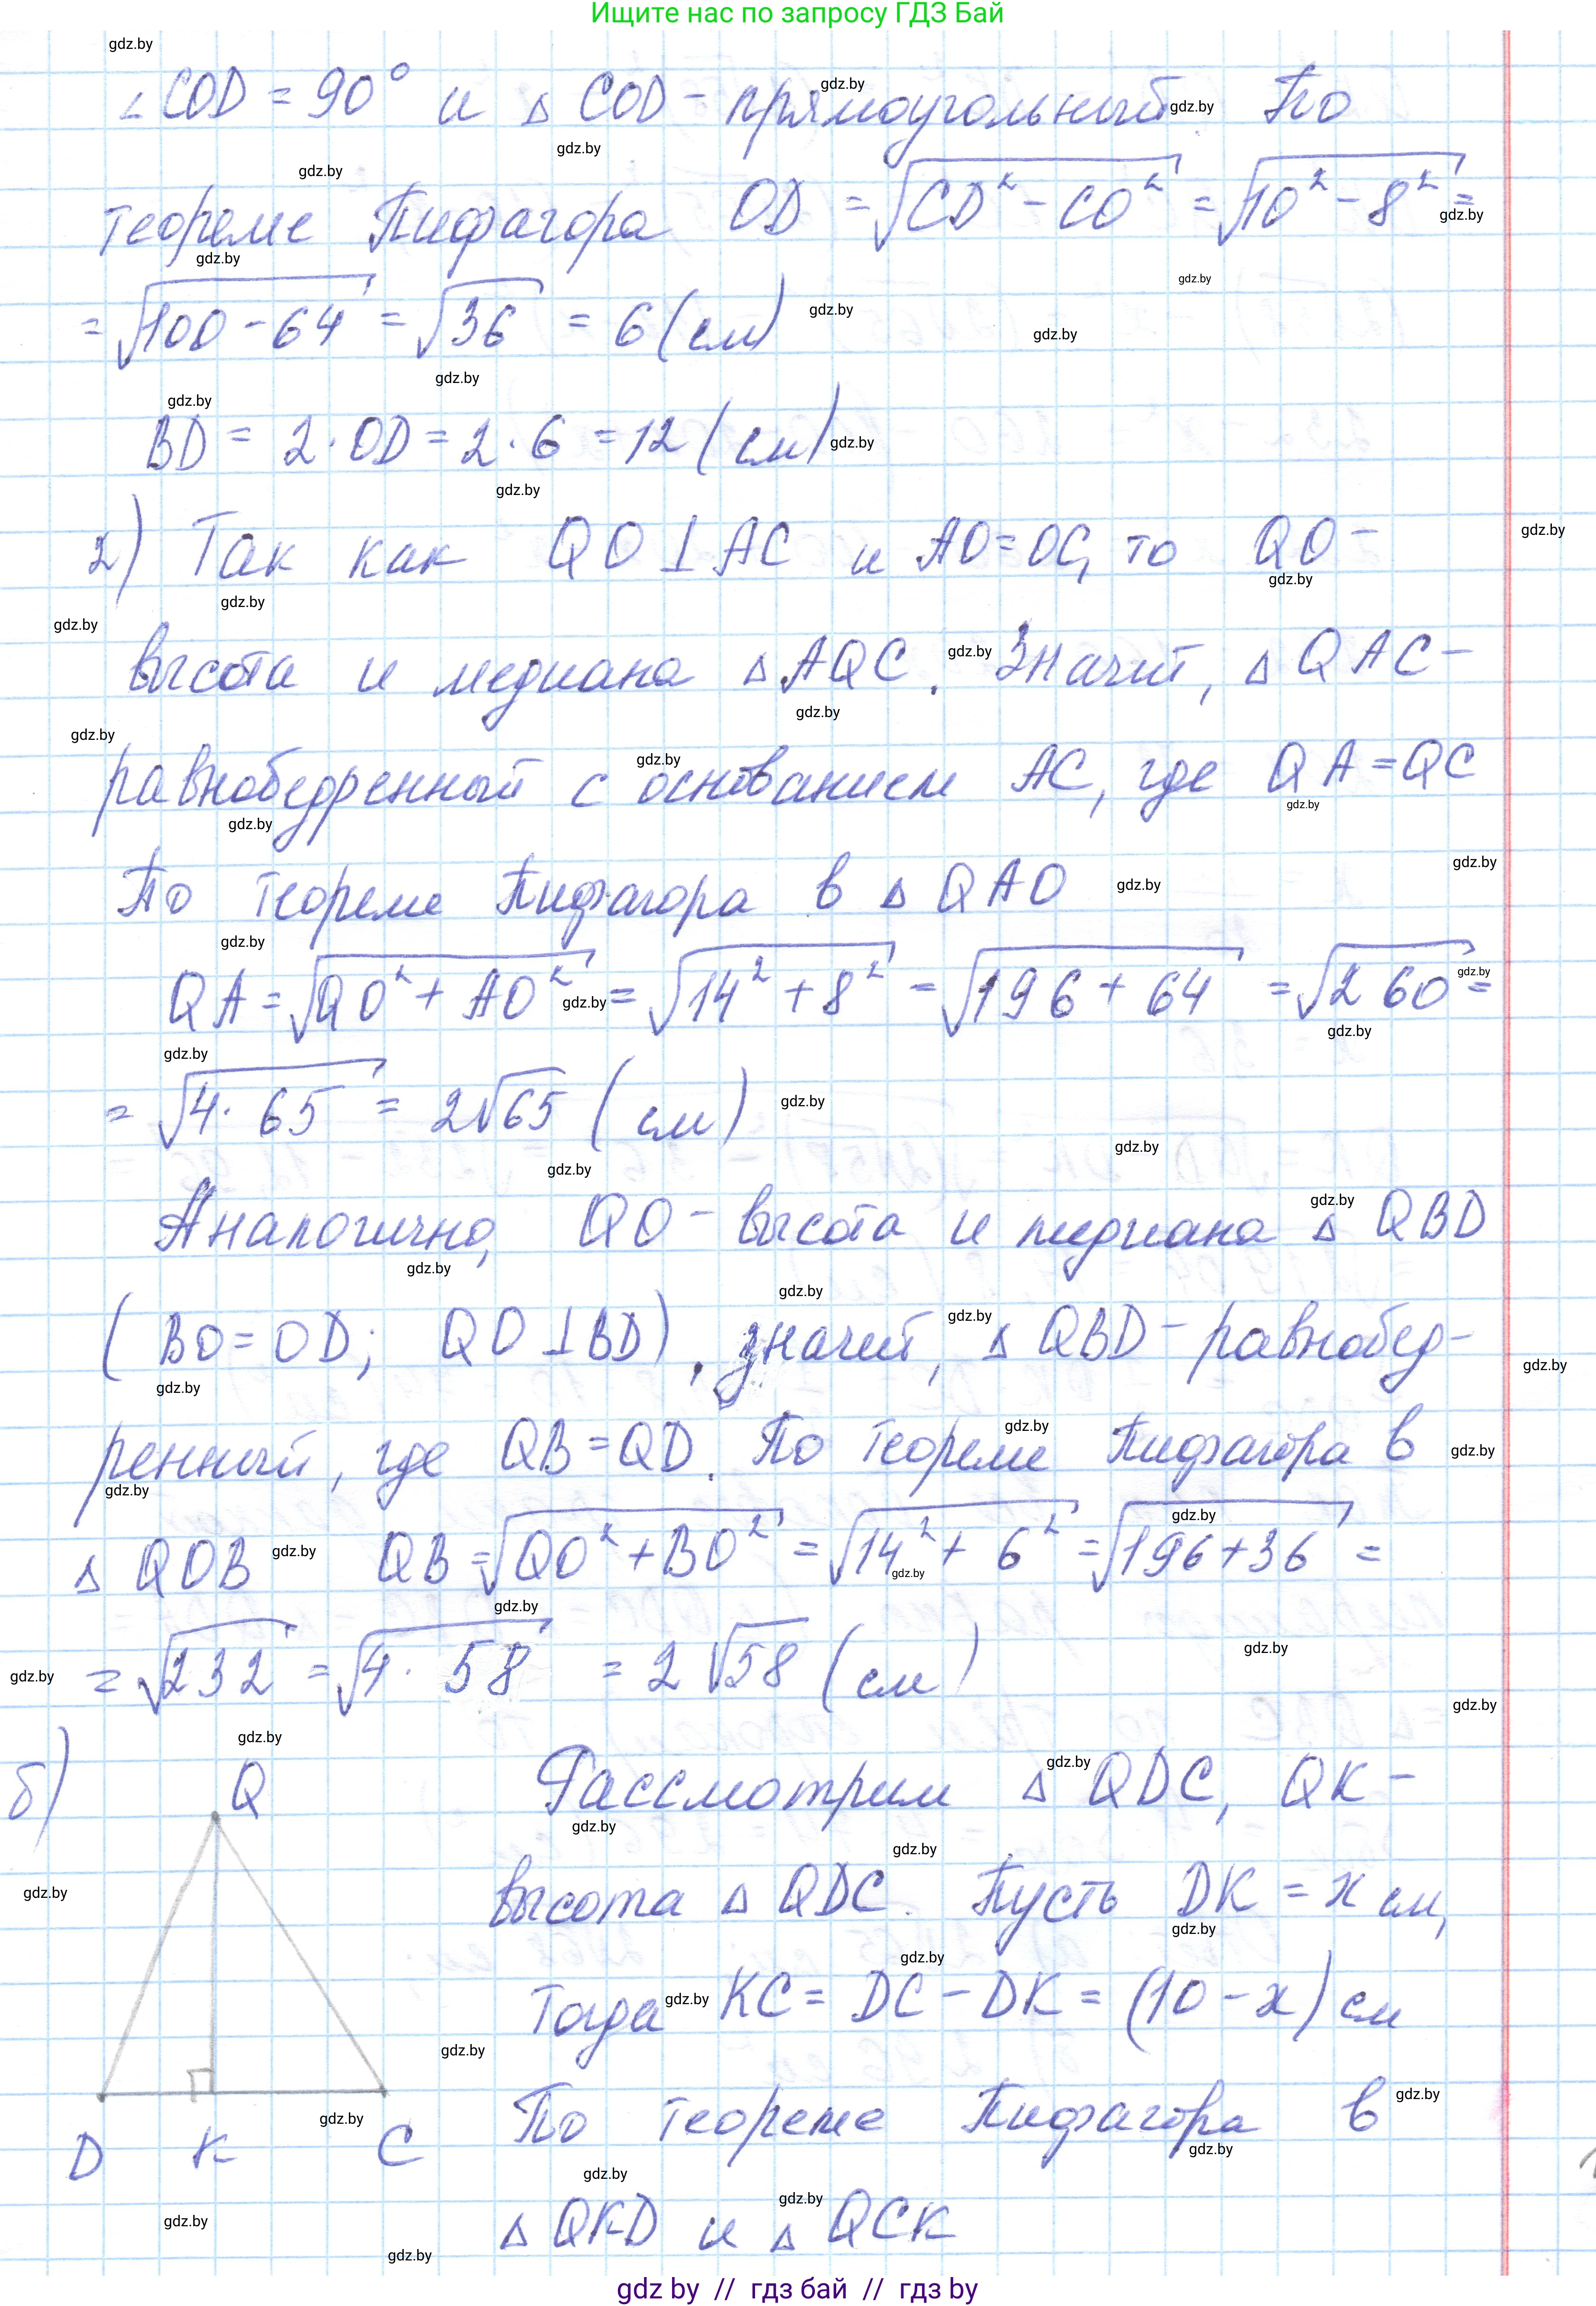 Ищите нас по запросу ГДЗ Бай
∠COD = 90° и △ COD - прямоугольный. По
теореме Пифагора OD = √(CD² - CO²) = √(10² - 8²) =
= √(100 - 64) = √36 = 6 (см)
BD = 2 · OD = 2 · 6 = 12 (см)
2) Так как QO ⊥ AC и AO = OC, то QO -
высота и медиана △ AQC. Значит, △ QAC -
равнобедренный с основанием AC, где QA = QC
По теореме Пифагора в △ QAO
QA = √(QO² + AO²) = √(14² + 8²) = √(196 + 64) = √260 =
= √(4 · 65) = 2√65 (см)
Аналогично, QO - высота и медиана △ QBD
(BO = OD; QO ⊥ BD), значит, △ QBD - равнобед-
ренный, где QB = QD. По теореме Пифагора в
△ QOB QB = √(QO² + BO²) = √(14² + 6²) = √(196 + 36) =
= √232 = √(4 · 58) = 2√58 (см)
б) Q Рассмотрим △ QDC, QK -
высота △ QDC. Пусть DK = x см,
тогда KC = DC - DK = (10 - x) см
По теореме Пифагора в
D K C
△ QKD и △ QCK
gdz by // гдз бай // гдз by